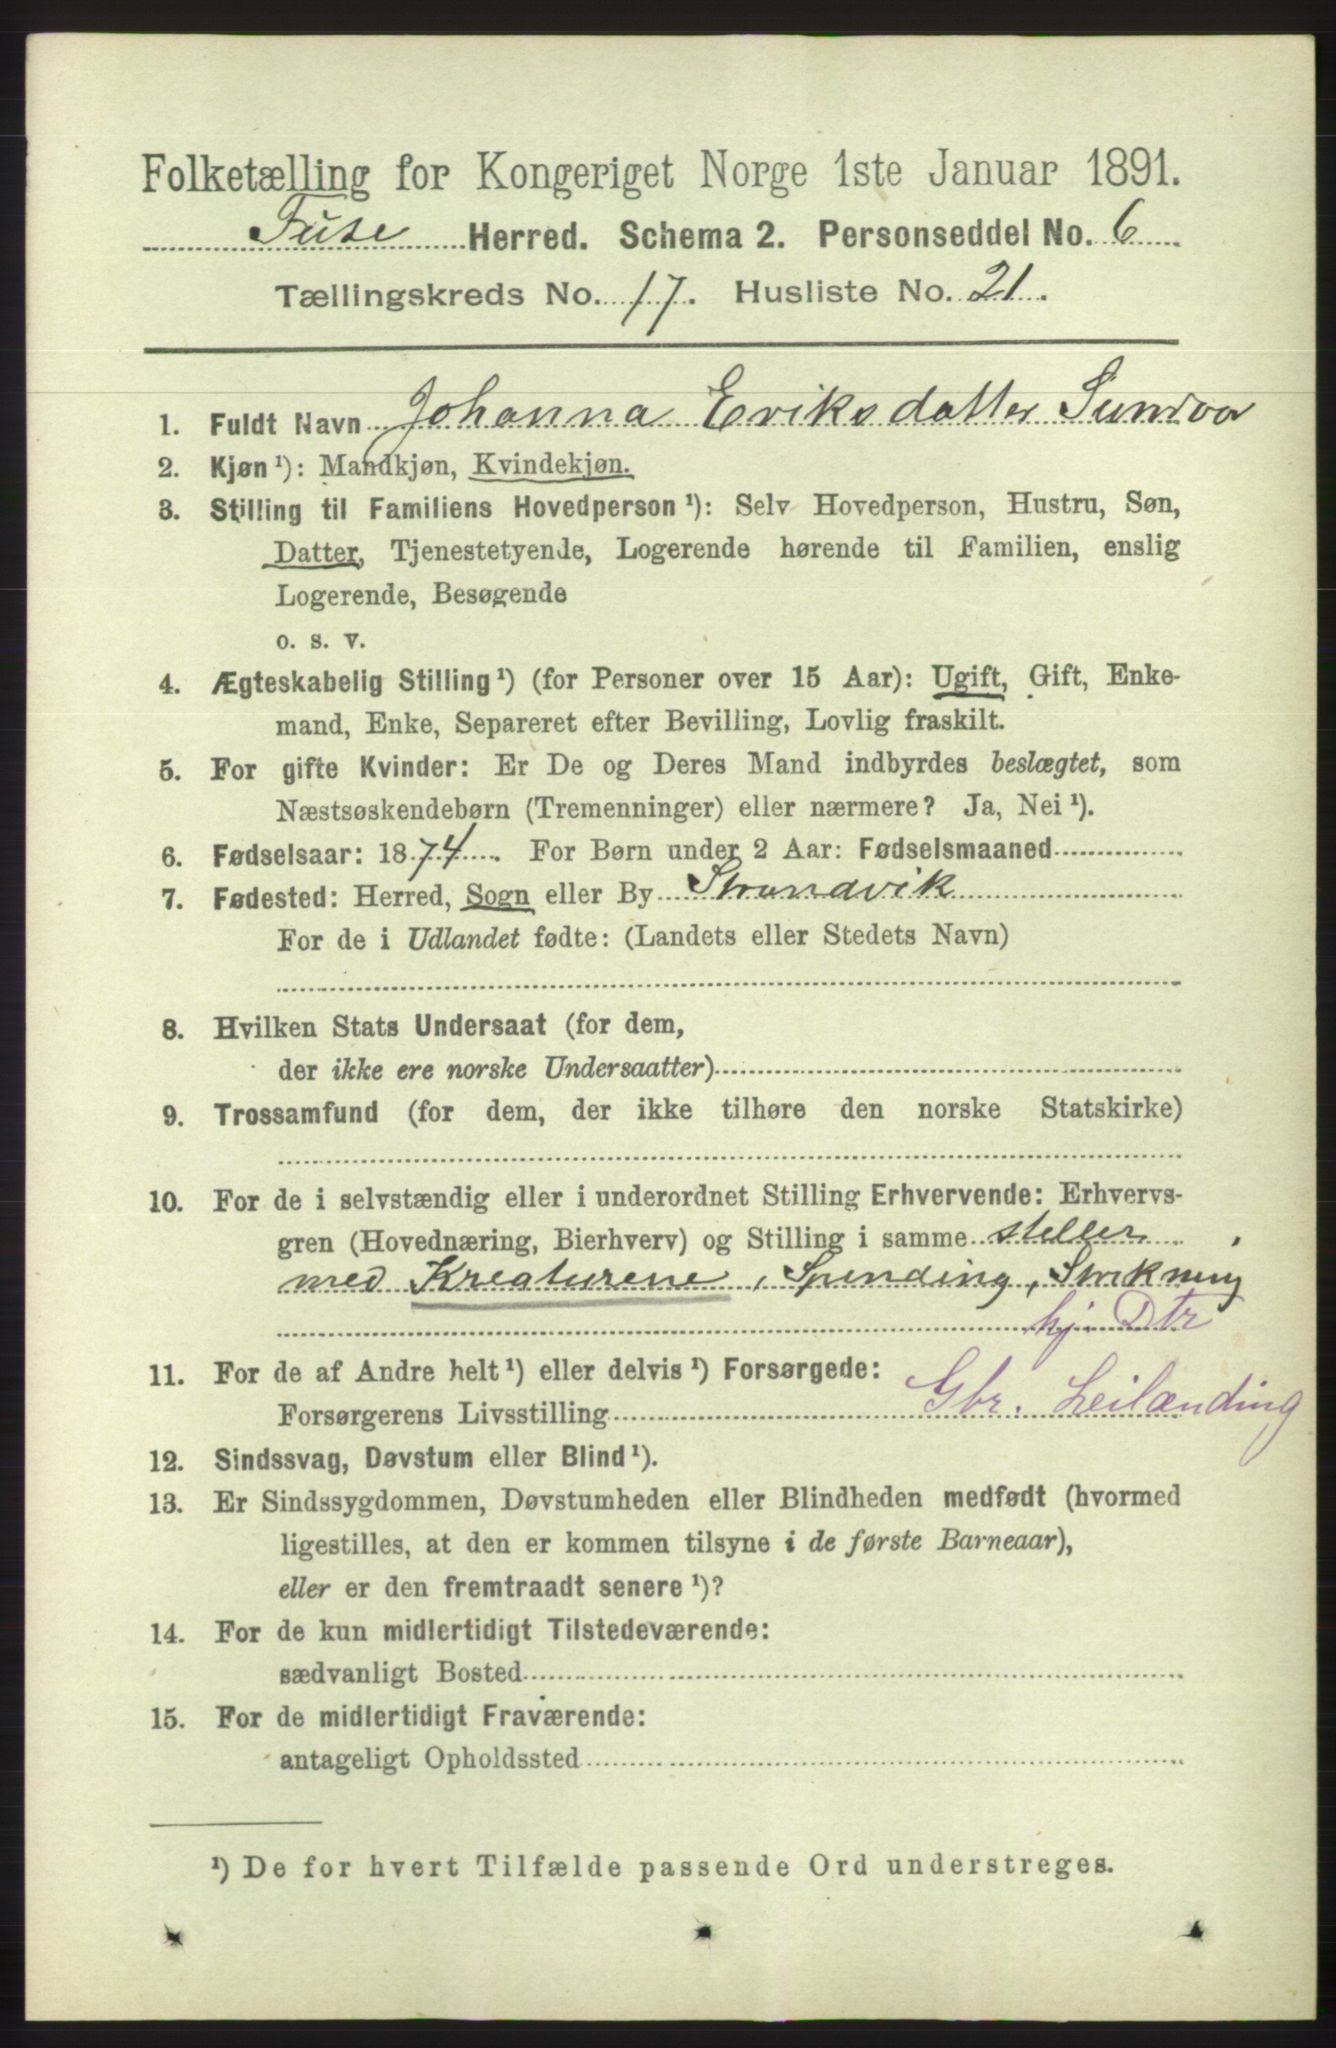 Folketælling for Kongeriget Norge 1ste Januar 1891.
Fuse Herred. Schema 2. Personseddel No. 6
Tællingskreds No. 17. Husliste No. 21.
1. Fuldt Navn Johanna Eriksdatter Sundvor
2. Kjøn¹): Mandkjøn, Kvindekjøn.
3. Stilling til Familiens Hovedperson¹): Selv Hovedperson, Hustru, Søn,
Datter, Tjenestetyende, Logerende hørende til Familien, enslig
Logerende, Besøgende
o. s. v.
4. Ægteskabelig Stilling¹) (for Personer over 15 Aar): Ugift, Gift, Enke-
mand, Enke, Separeret efter Bevilling, Lovlig fraskilt.
5. For gifte Kvinder: Er De og Deres Mand indbyrdes beslægtet, som
Næstsøskendebørn (Tremenninger) eller nærmere? Ja, Nei¹).
6. Fødselsaar: 1874. For Børn under 2 Aar: Fødselsmaaned
7. Fødested: Herred, Sogn eller By Strandvik
For de i Udlandet fødte: (Landets eller Stedets Navn)
8. Hvilken Stats Undersaat (for dem,
der ikke ere norske Undersaatter)
9. Trossamfund (for dem, der ikke tilhøre den norske Statskirke)
10. For de i selvstændig eller i underordnet Stilling Erhvervende: Erhvervs-
gren (Hovednæring, Bierhverv) og Stilling i samme steller
med Kreaturene, Spinding, Strikning
hj. Dtr
11. For de af Andre helt¹) eller delvis¹) Forsørgede:
Forsørgerens Livsstilling Gbr. Leilænding
12. Sindssvag, Døvstum eller Blind¹).
13. Er Sindssygdommen, Døvstumheden eller Blindheden medfødt (hvormed
ligestilles, at den er kommen tilsyne i de første Barneaar),
eller er den fremtraadt senere¹)?
14. For de kun midlertidigt Tilstedeværende:
sædvanligt Bosted
15. For de midlertidigt Fraværende:
antageligt Opholdssted
¹) De for hvert Tilfælde passende Ord understreges.